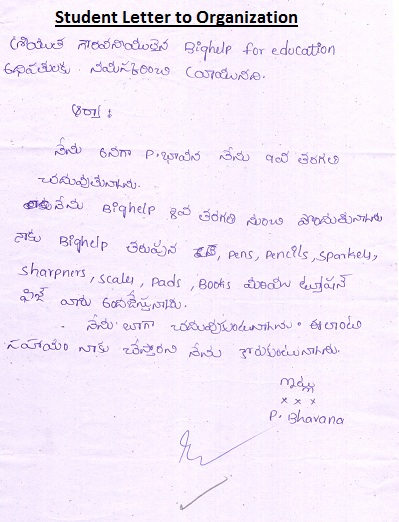 Student Letter to Organization
శ్రీయుత గౌరవనీయులైన Bighelp for education
అధిపతులకు నమస్కరించి వ్రాయునది.
ఆర్యా :
నేను అనగా P. భావన నేను 9వ తరగతి
చదువుతున్నాను.
నేను Bighelp 8వ తరగతి నుంచి పొందుతున్నాను
నాకు Bighelp తరుపున , pens, pencils, sparkels,
sharpners, scales, pads, Books మరియు ట్యూషన్
ఫీజ్ వారు అందజేస్తున్నారు.
నేను బాగా చదువుకుంటున్నాను. ఈలాంటి
సహాయం నాకు చేస్తారని నేను కోరుకుంటున్నాను.
ఇట్లు
x x x
P. Bhavana